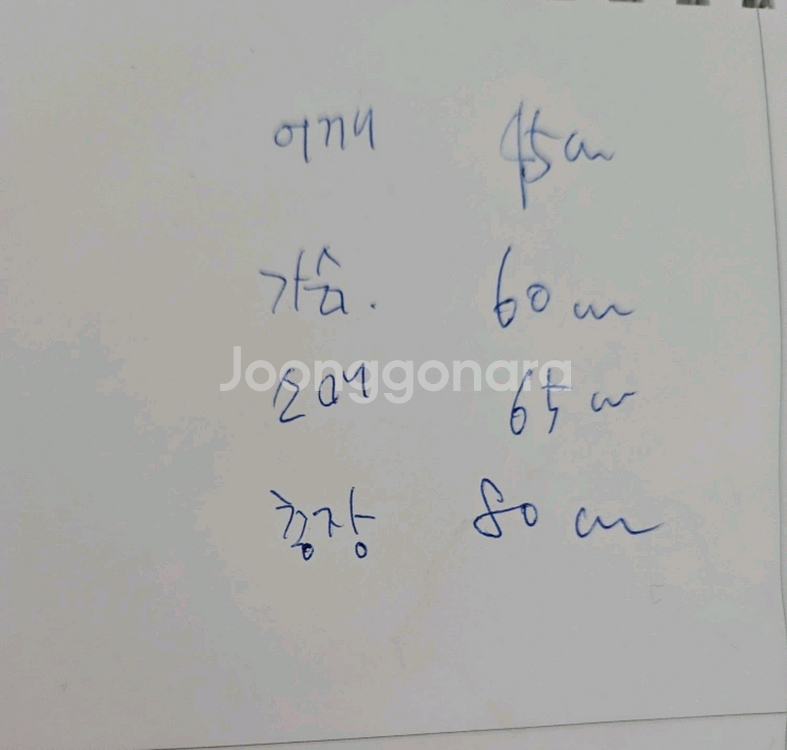 어깨 45cm
가슴. 60cm
Joonggonara
소매 65cm
총장 80cm